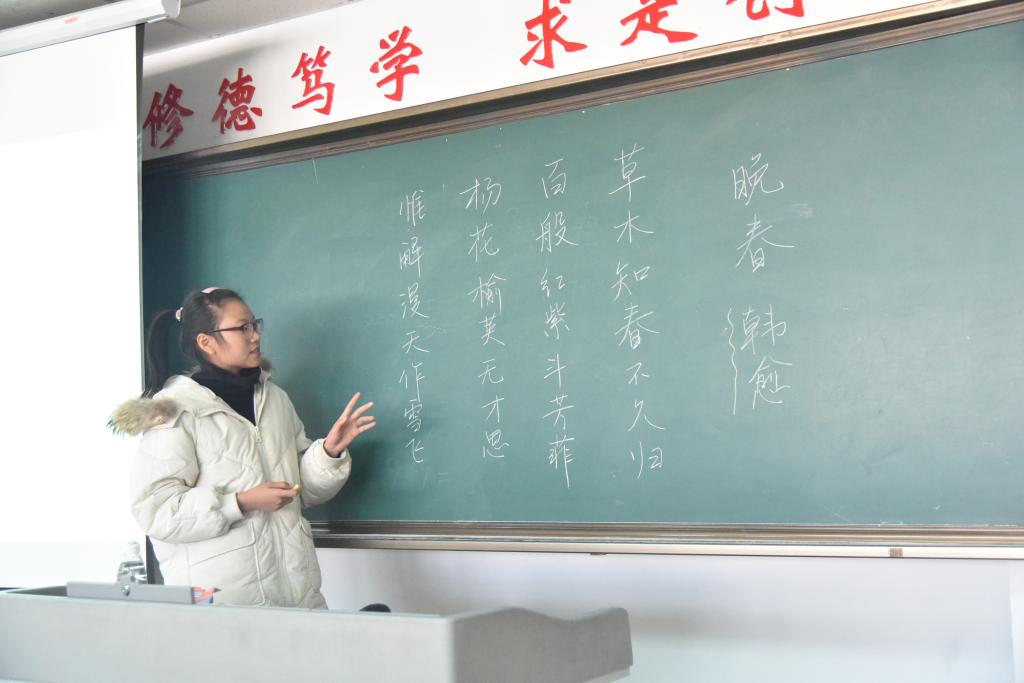 修德笃学 求是
晚春 韩愈
草木知春不久归
百般红紫斗芳菲
杨花榆荚无才思
惟解漫天作雪飞